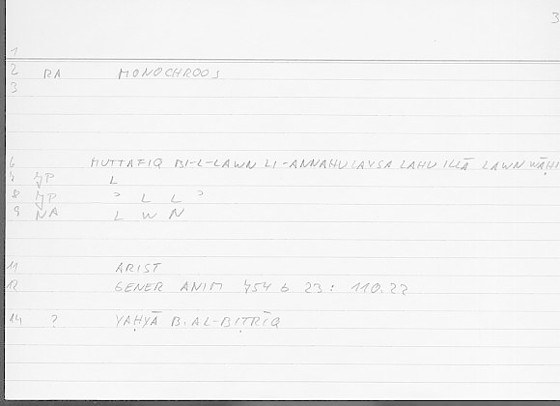 3
1
2 RA MONOCHROOS
3
6 MUTTAFIQ BI-L-LAWN LI-ANNAHU LAYSA LAHU ILLĀ LAWN WĀḤI
7 JP L
8 JP ʾ L L ʾ
9 NA L W N
11 ARIST
12 GENER ANIM 754 b 23: 110.22
14 ? YAḤYĀ B. AL-BIṬRĪQ